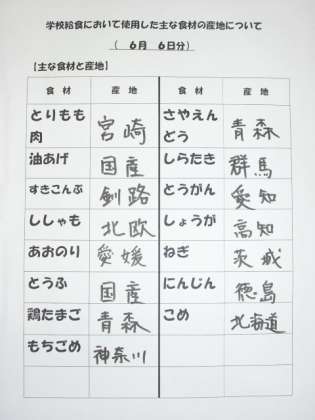 学校給食において使用した主な食材の産地について
（ 6月 6日分）
【主な食材と産地】
食 材 産 地 食 材 産 地
とりもも肉 宮崎 さやえんどう 青森
油あげ 国産 しらたき 群馬
すきこんぶ 釧路 とうがん 愛知
ししゃも 北欧 しょうが 高知
あおのり 愛媛 ねぎ 茨城
とうふ 国産 にんじん 徳島
鶏たまご 青森 こめ 北海道
もちごめ 神奈川